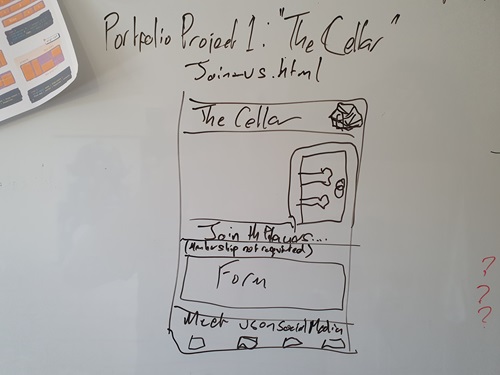 Portfolio Project 1: "The Cellar"
Join-us.html
The Cellar
Join th Players...
(Membership not required)
Form
Meet us on Social Media
?
?
?